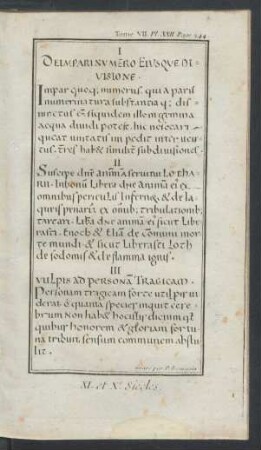 Tome VII. Pl. XXII Page 244
I
DE IMPARI NUMERO EIUSQUE DI
VISIONE
Impar quoq; numerus qui a paris
numeri natura substantia q; dis
iunctus
Siquidem ille in gemina
aequa dividi potest. hic ne secari
queat unitatis impedit interventus
tres habet similit subdivisiones
II
Suscipe dne animã servi tui
Libera dne animã ei ex
omnibus periculis Infernor, & de la
queis penarũ ex omnib; tribulationib;
Libã dne animã ei sicut libe
rasti Enoch & Eliã de comuni mor
te mundi & sicut liberasti Loth
de sodomis & de flamma ignis.
III
VULPIS AD PERSONÃ TRAGICAM
Personam tragicam forte vulpis vi
derat O quanta species inquit cere
brum Non hab& hoc illis dictum q̃
quibus honorem & gloriam fortu
na tribuit sensum communem abstu
lit.
XI. et Xe. Siecles.